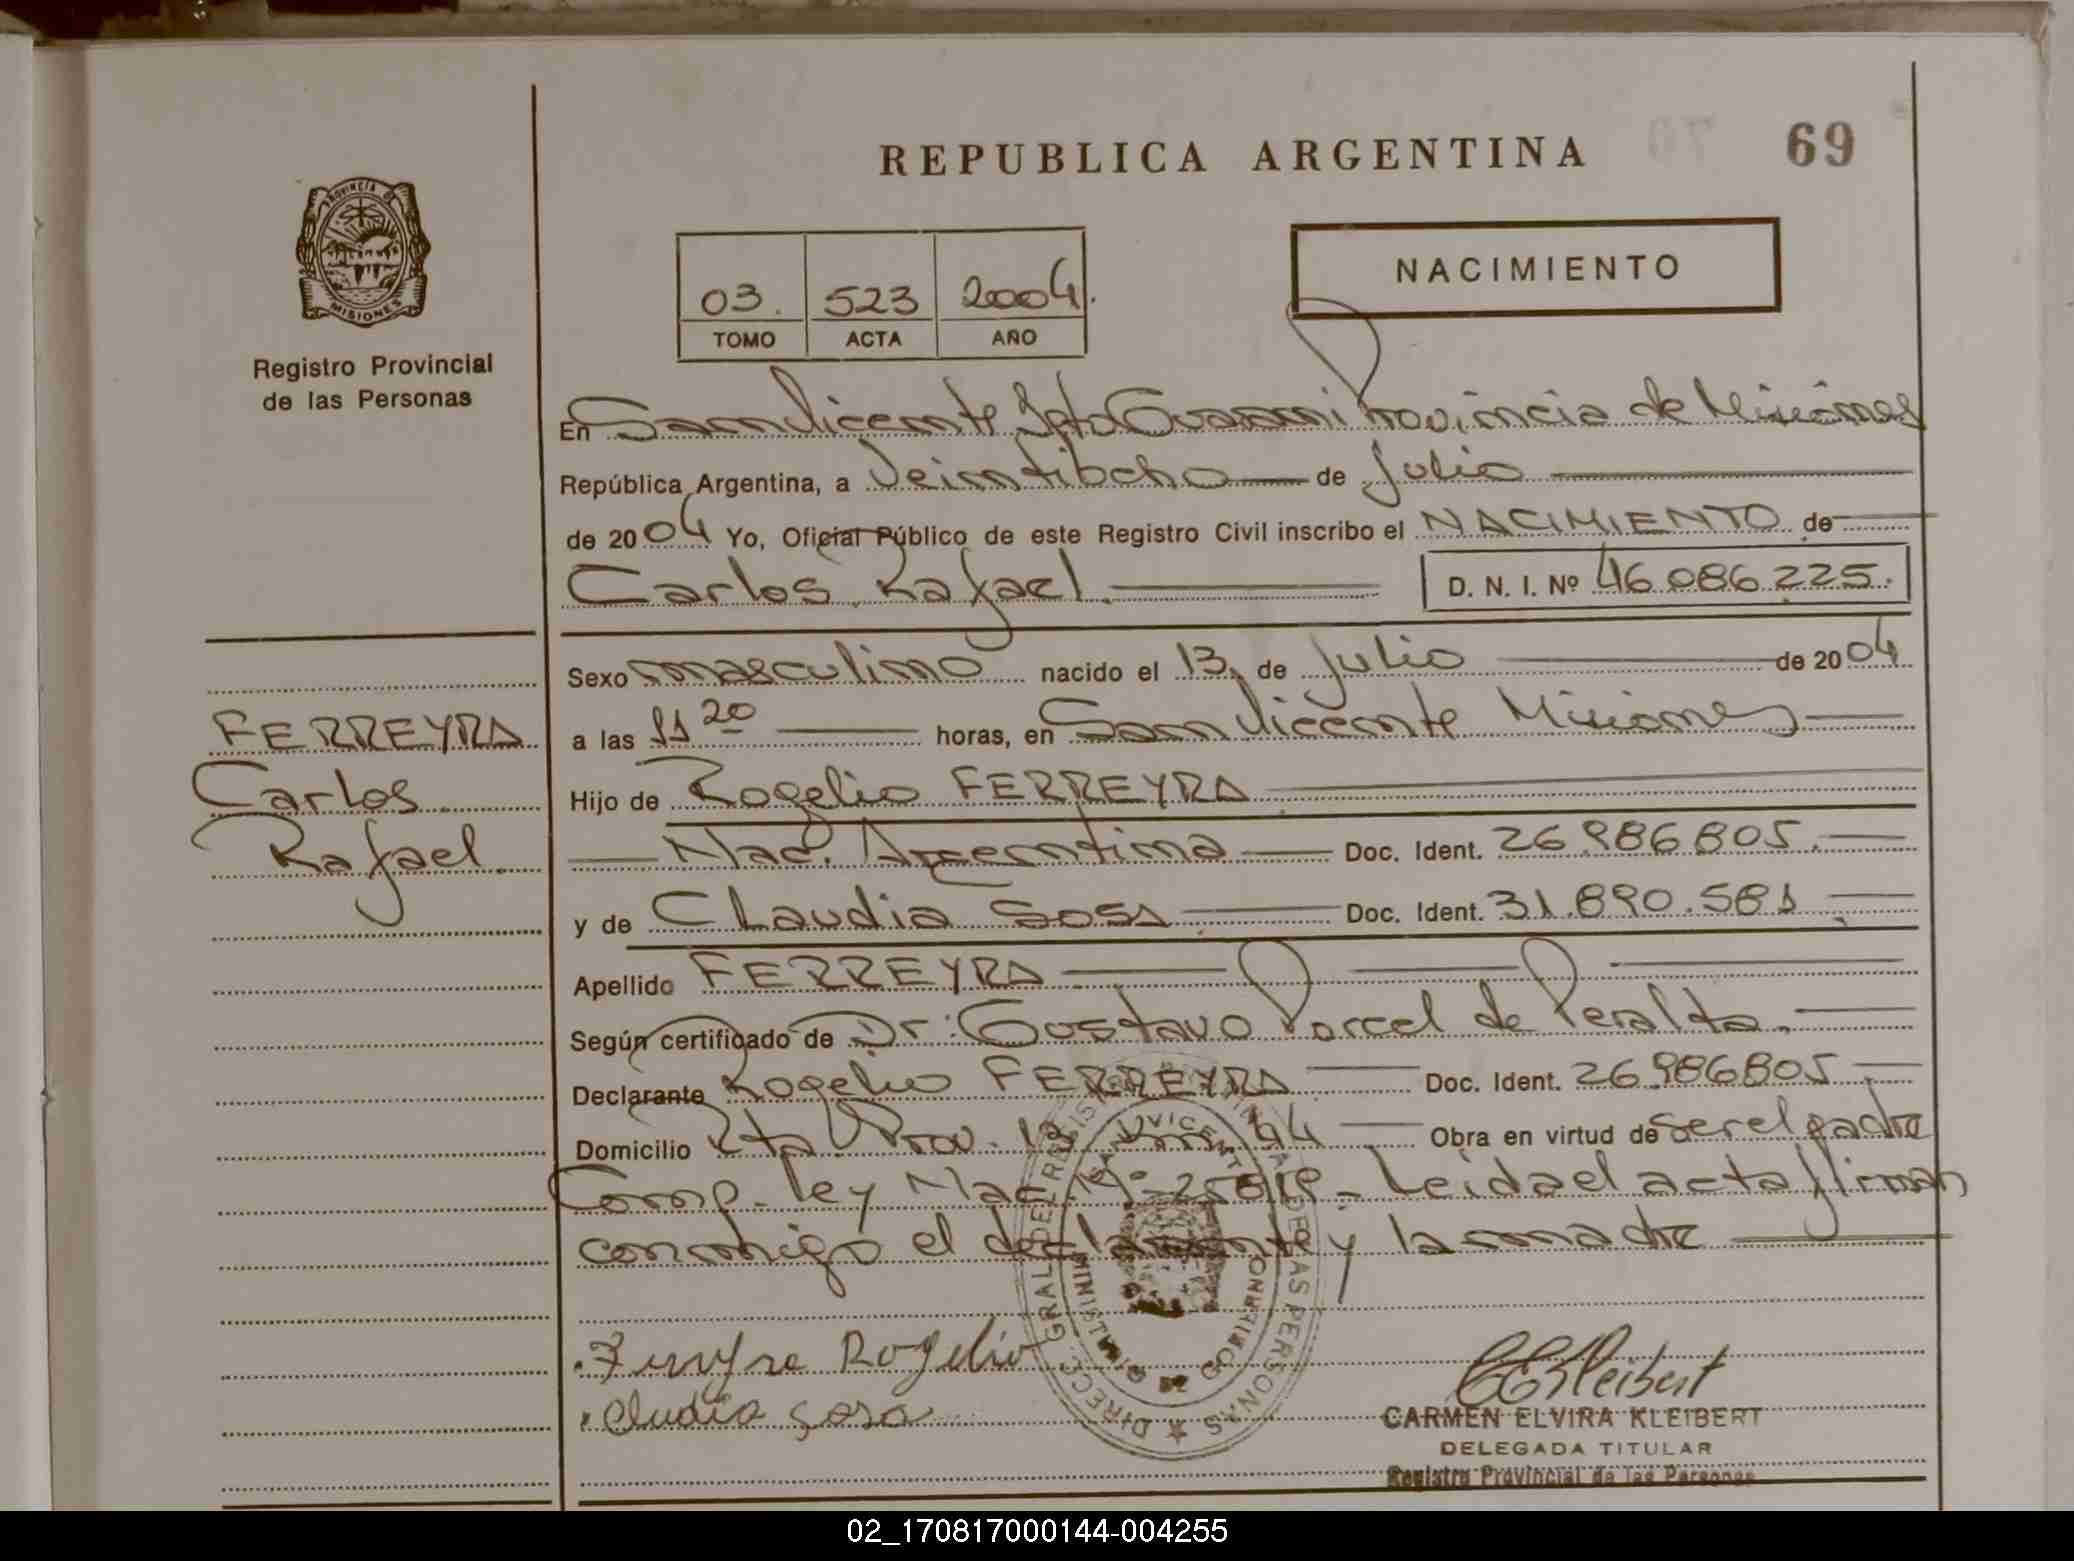 REPUBLICA ARGENTINA
69
PROVINCIA DE
MISIONES
Registro Provincial
de las Personas
03. 523 2004.
TOMO ACTA AÑO
NACIMIENTO
En San Vicente Dpto Guarani Provincia de Misiones
República Argentina, a Veintiocho de Julio
de 2004 Yo, Oficial Público de este Registro Civil inscribo el NACIMIENTO de
Carlos Rafael. D. N. I. Nº 46.086.225.
Sexo masculino nacido el 13, de Julio de 2004
FERREYRA
Carlos
Rafael.
a las 11 20 horas, en San Vicente Misiones
Hijo de Rogelio FERREYRA
Nac. Argentina Doc. Ident. 26.986.805.
y de Claudia Sosa Doc. Ident. 31.890.581
Apellido FERREYRA
Según certificado de Dr: Gustavo Porcel de Peralta.
Declarante Rogelio FERREYRA Doc. Ident. 26.986805
Domicilio Rta Prov. 13 Km 44 Obra en virtud de ser el padre
Comp. ley Nac. Nº Leida el acta firman
conmigo el declarante y la madre
Rogelio
Cludia Sosa
CARMEN ELVIRA KLEIBERT
DELEGADA TITULAR
Registro Provincial de las Personas
02_170817000144-004255